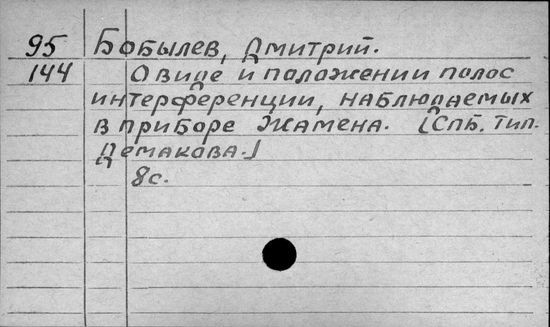 95 Бобылев, Дмитрий.
144 О виде и положении полос
интерференции, наблюдаемых
в приборе Жамена. [Спб. тип.
Демакова.]
8с.